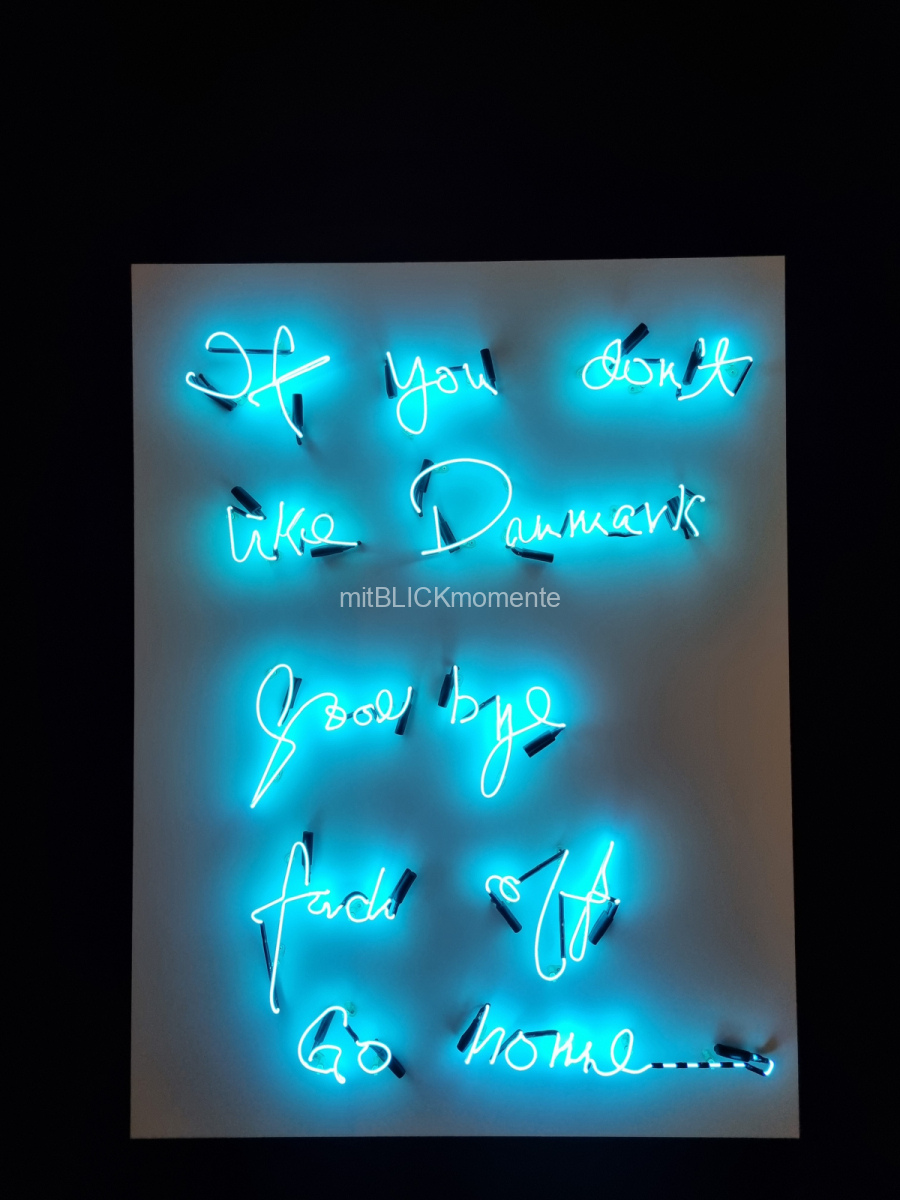 If you don't
like Danmark
mitBLICKmomente
good bye
fuck off
Go home